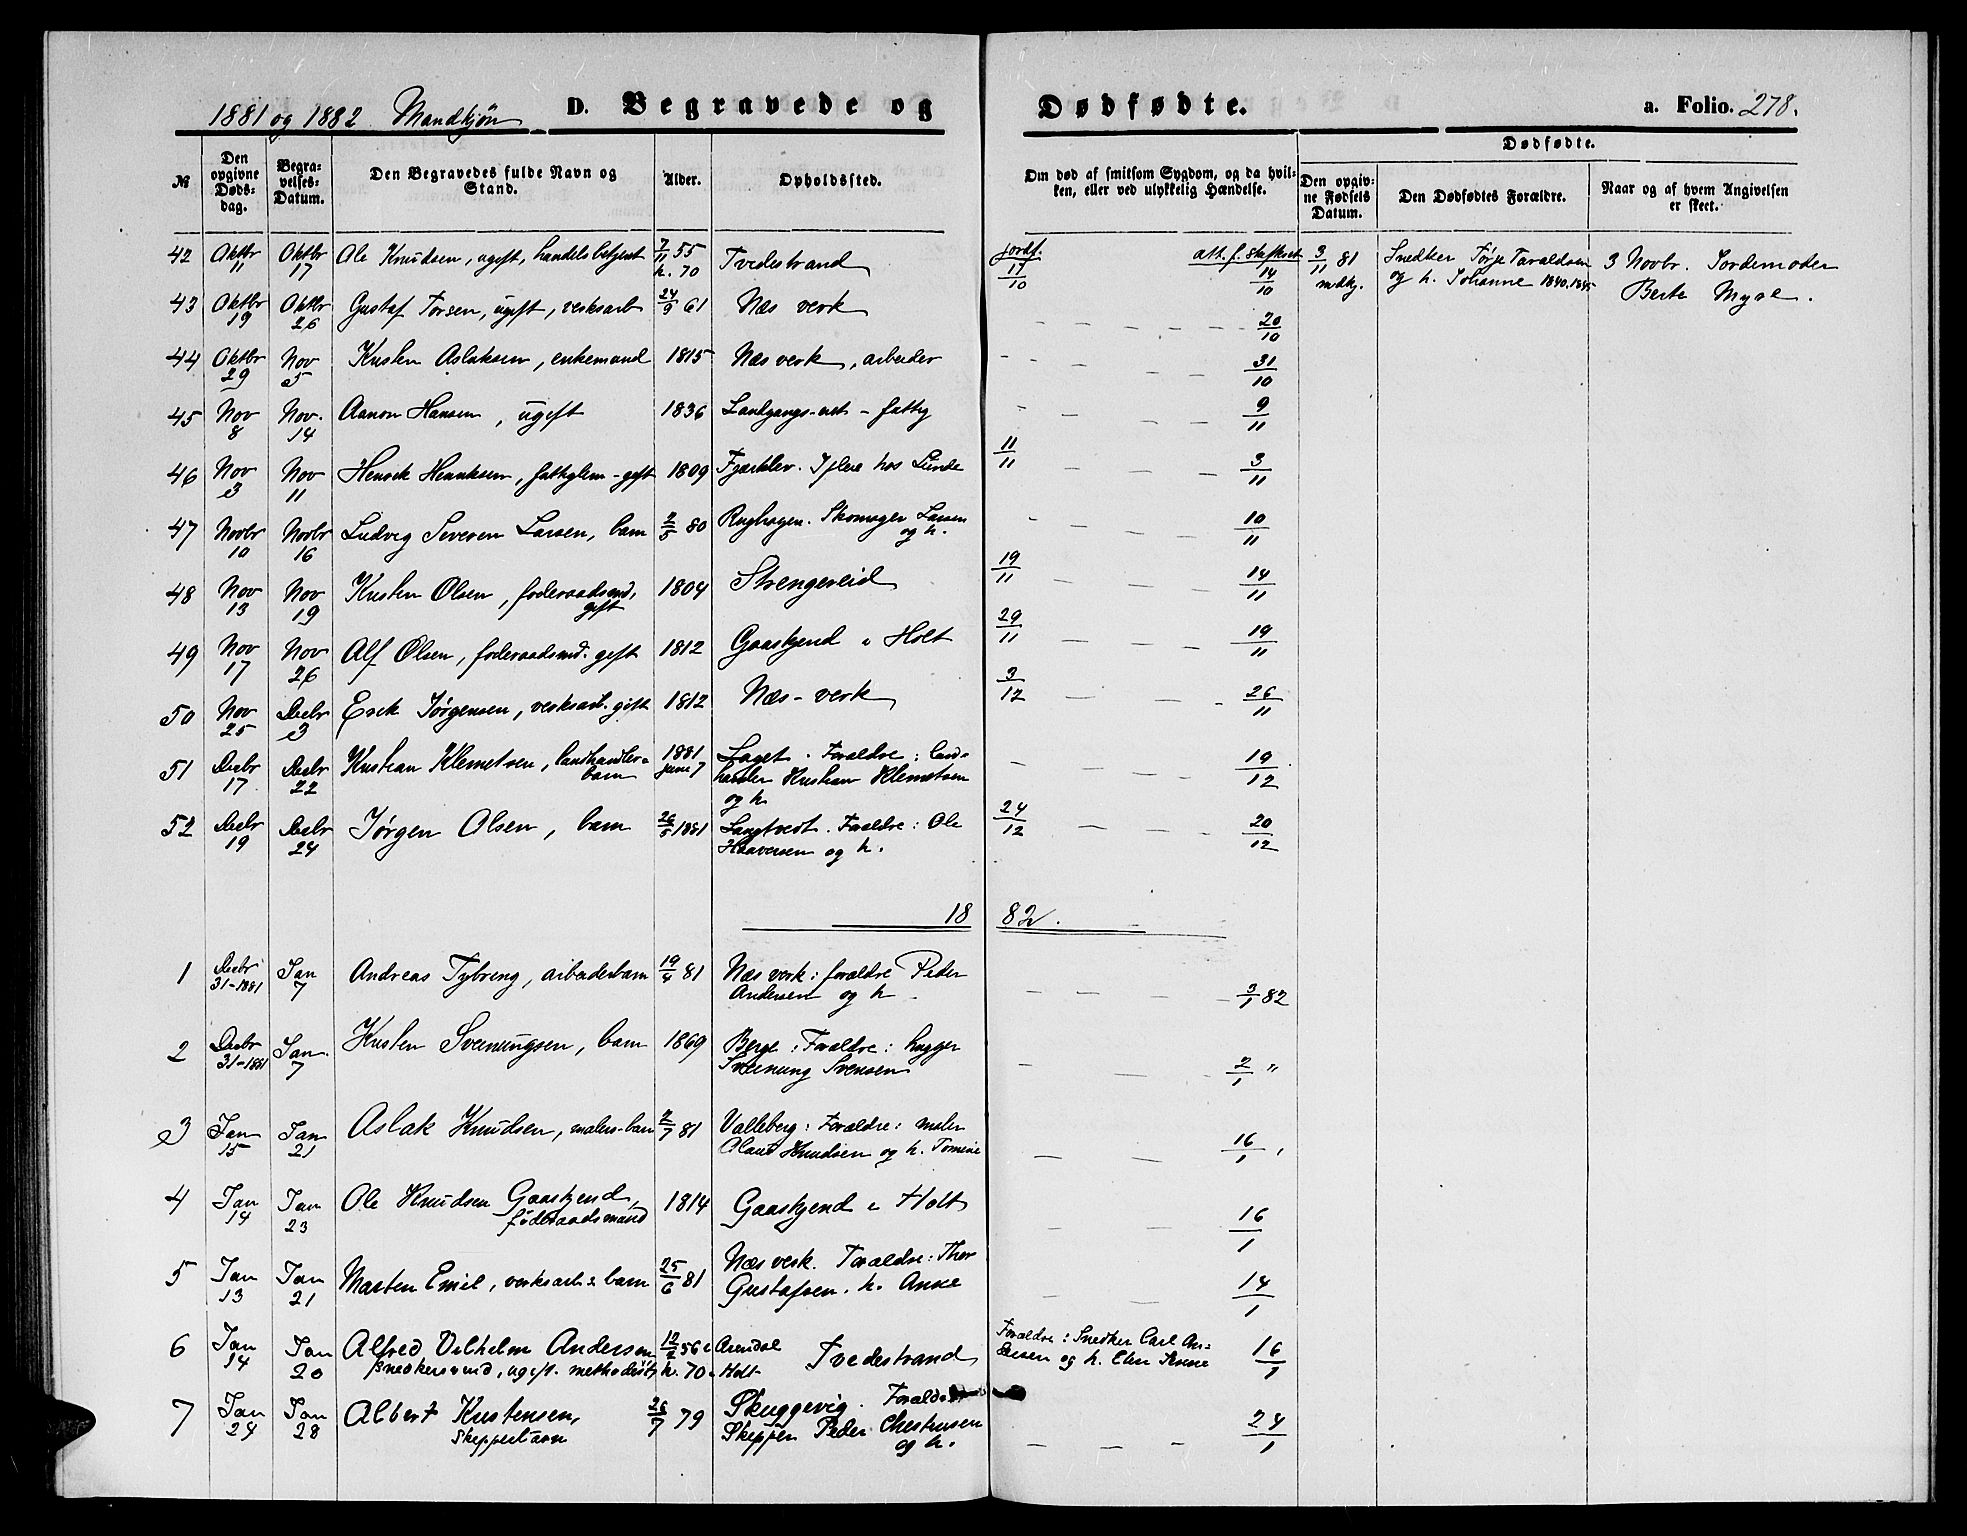 1881 og 1882 Mandkjøn D. Begravede og Dødfødte. a. Folio. 278.
№ Den opgivne Døds-dag. Begra-velses-Datum. Den Begravedes fulde Navn og Stand. Alder. Opholdssted. Om død af smitsom Sygdom, og da hvil-ken, eller ved ulykkelig Hændelse. Dødfødte. Den opgiv-ne Fødsels Datum. Den Dødfødtes Forældre. Naar og af hvem Angivelsen er skeet.
42 Oktbr 11 Oktbr 17 Ole Knudsen, ugift, handelsbetjent 7/11 55 k. 70 Tvedestrand jordf. 17/10 att. f. skifteret 14/10 3/11 81 mdkj. Snedker Tørje Taraldsen og h. Johanne 1840, 1845 3 Novbr. Jordemoder Berte Myre.
43 Oktbr 19 Oktbr 26 Gustaf Torsen, ugift, verksarb 24/9 61 Næs verk 20/10
44 Oktbr 29 Nov 5 Kristen Aslaksen, enkemand 1815 Næs verk, arbeider 31/10
45 Nov 8 Nov. 14 Aanon Hansen, ugift 1836 - fattig 9/11
46 Nov 3 Nov 11 Henrik Henriksen, fattiglem - gift 1809 hos Lunde 11/11 3/11
47 Novbr 10 Novbr 16 Ludvig Severin Larsen, barn 2/5 80 Skomager Larsen og h. 10/11
48 Nov 13 Nov 19 Kristen Olsen, foderaadsmd, gift 1804 Strengereid 19/11 14/11
49 Nov 17 Nov 26 Alf Olsen, foderaadsmd. gift 1812 Gaaskjend i Holt 29/11 19/11
50 Nov 25 Decbr 3 Erik Jørgensen, verksarb. gift 1812 Næs-verk 3/12 26/11
51 Decbr 17 Decbr 22 Kristian Klemetsen, landhandler-barn 1881 juni 7 Laget. Forældre: land-handler Kristian Klemetsen og h 19/12
52 Decbr 19 Decbr 24 Jørgen Olsen, barn 26/5 1881 Langtvedt. Forældre: Ole Haaversen og h. 24/12 20/12
1882.
1 Decbr 31-1881 Jan 7 Andreas Tybring, arbeiderbarn 19/4 81 Næs verk: forældre Peder Andersen og h 3/1 82
2 Decbr 31-1881 Jan. 7 Kristen Sveinungsen, barn 1869 Berge: Forældre: hugger Sveinung Svensen 2/1 "
3 Jan 15 Jan 21 Aslak Knudsen, malers-barn 2/7 81 Valleberg: Forældre: maler Olaus Knudsen og h. Tomine 16/1
4 Jan 14 Jan 23 Ole Knudsen Gaaskjend, føderaadsmand 1814 Gaaskjend i Holt 16/1
5 Jan 13 Jan 21 Marten Emil, verksarb.s barn 25/6 81 Næs verk. Forældre: Thor Gustafsen. h. Anne 14/1
6 Jan 14 Jan 20 Alfred Vilhelm Andersen snedkersvend, ugift. methodist 12/2 56 i Arendal k. 70 i Holt Tvedestrand Forældre: Snedker Carl An-dersen og h. 16/1
7 Jan 24 Jan 28 Albert Kristensen, Skipperbarn 26/7 79 Skuggevig. Forældre: Skipper Peder Christensen og h. 24/1